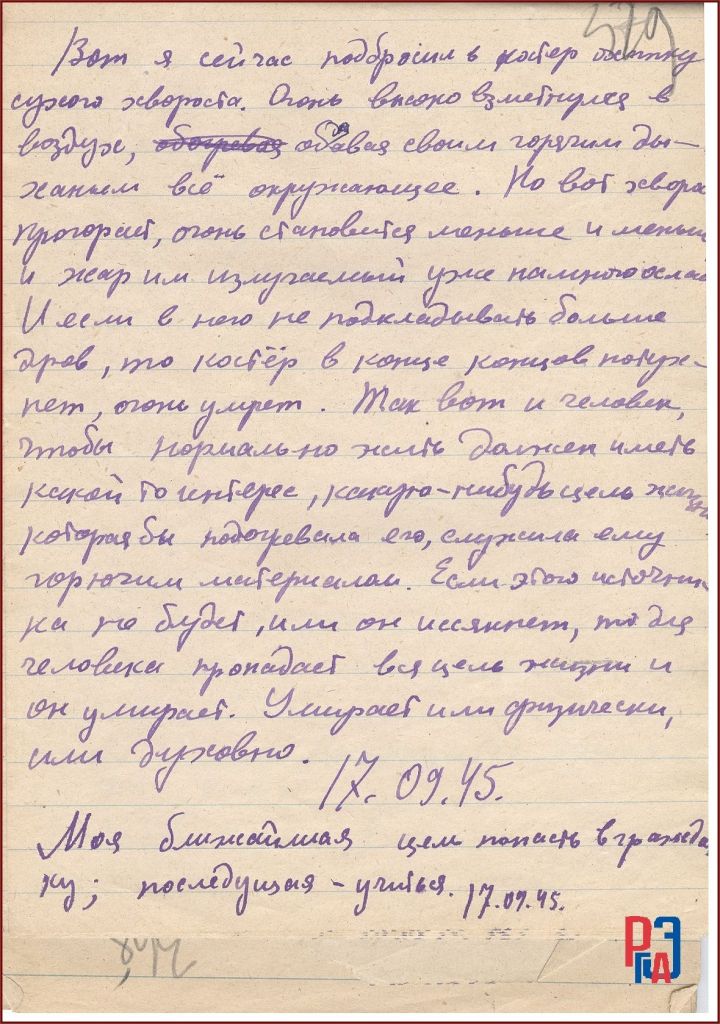 579
Вот я сейчас подбросил в костер охапку
сухого хвороста. Огонь высоко взметнулся в
воздух, обогревая обдавая своим горячим ды-
ханьем всё окружающее. Но вот хвора
прогорает, огонь становится меньше и меньш
и жар им излучаемый уже намного ослаб
И если в него не подкладывать больше
дров, то костёр в конце концов потух-
нет, огонь умрет. Так вот и человек,
чтобы нормально жить должен иметь
какой то интерес, какую-нибудь цель жизни
которая бы подогревала его, служила ему
горючим материалом. Если этого источни-
ка не будет, или он иссякнет, то для
человека пропадает вся цель жизни и
он умирает. Умирает или физически,
или духовно.
17.09.45.
Моя ближайшая цель попасть в гражда
ку; последущая - учиться. 17.09.45.
РГАЭ